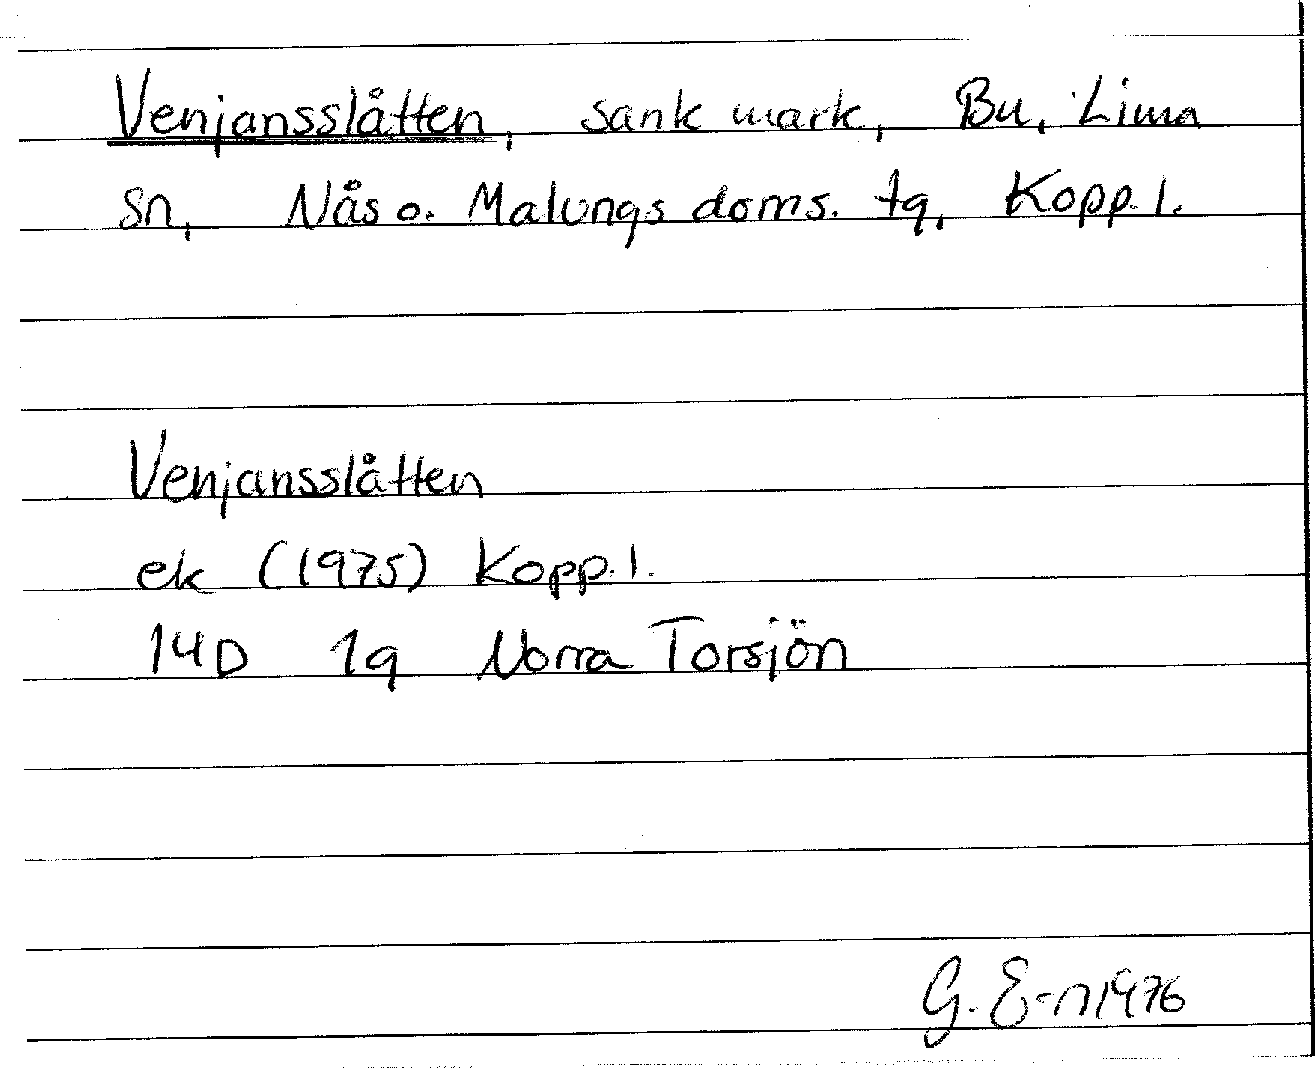 Venjansslåtten, sank mark, Bu, Lima
sn, Nås o. Malungs doms. tg, Kopp. l.
Venjansslåtten
ek (1975) Kopp. l.
14D 1g Norra Torsjön
G. E-n 1976